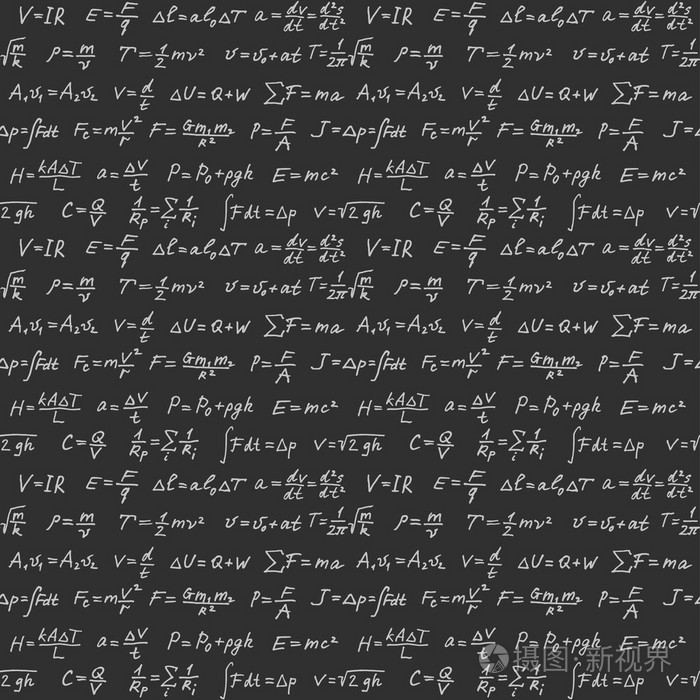 V=IR E=F/q Δl=al₀ΔT a=dv/dt=d²s/dt² V=IR E=F/q Δl=al₀ΔT a=dv/dt=d²s/dt²
√m/k ρ=m/v T=1/2mv² v=v₀+at T=1/2π√m/k ρ=m/v T=1/2mv² v=v₀+at T=1/2π
A₁v₁=A₂v₂ v=d/t ΔU=Q+W ∑F=ma A₁v₁=A₂v₂ v=d/t ΔU=Q+W ∑F=ma
Δp=∫Fdt Fc=mv²/r F=Gm₁m₂/R² P=F/A J=Δp=∫Fdt Fc=mv²/r F=Gm₁m₂/R² P=F/A J=
H=kAΔT/L a=ΔV/t P=P₀+ρgh E=mc² H=kAΔT/L a=ΔV/t P=P₀+ρgh E=mc²
√2gh C=Q/V 1/Rp=∑i 1/Ri ∫Fdt=Δp v=√2gh C=Q/V 1/Rp=∑i 1/Ri ∫Fdt=Δp v=√
V=IR E=F/q Δl=al₀ΔT a=dv/dt=d²s/dt² V=IR E=F/q Δl=al₀ΔT a=dv/dt=d²s/dt²
√m/k ρ=m/v T=1/2mv² v=v₀+at T=1/2π√m/k ρ=m/v T=1/2mv² v=v₀+at T=1/2π
A₁v₁=A₂v₂ v=d/t ΔU=Q+W ∑F=ma A₁v₁=A₂v₂ v=d/t ΔU=Q+W ∑F=ma
Δp=∫Fdt Fc=mv²/r F=Gm₁m₂/R² P=F/A J=Δp=∫Fdt Fc=mv²/r F=Gm₁m₂/R² P=F/A J=
H=kAΔT/L a=ΔV/t P=P₀+ρgh E=mc² H=kAΔT/L a=ΔV/t P=P₀+ρgh E=mc²
√2gh C=Q/V 1/Rp=∑i 1/Ri ∫Fdt=Δp v=√2gh C=Q/V 1/Rp=∑i 1/Ri ∫Fdt=Δp v=√
V=IR E=F/q Δl=al₀ΔT a=dv/dt=d²s/dt² V=IR E=F/q Δl=al₀ΔT a=dv/dt=d²s/dt²
√m/k ρ=m/v T=1/2mv² v=v₀+at T=1/2π√m/k ρ=m/v T=1/2mv² v=v₀+at T=1/2π
A₁v₁=A₂v₂ v=d/t ΔU=Q+W ∑F=ma A₁v₁=A₂v₂ v=d/t ΔU=Q+W ∑F=ma
Δp=∫Fdt Fc=mv²/r F=Gm₁m₂/R² P=F/A J=Δp=∫Fdt Fc=mv²/r F=Gm₁m₂/R² P=F/A J=
H=kAΔT/L a=ΔV/t P=P₀+ρgh E=mc² H=kAΔT/L a=ΔV/t P=P₀+ρgh E=mc²
摄图·新视界
√2gh C=Q/V 1/Rp=∑i 1/Ri ∫Fdt=Δp v=√2gh C=Q/V 1/Rp=∑i 1/Ri ∫Fdt=Δp v=√